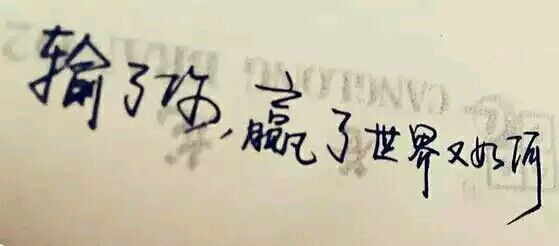 输了你,赢了世界又如何